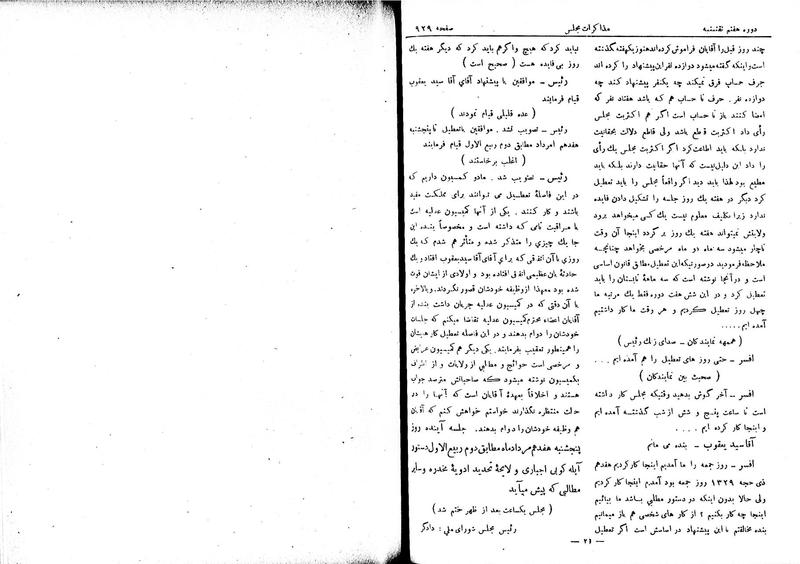 دوره هفتم تقنینیه
مذاکرات مجلس
صفحه ۹۲۹
چند روز قبل را آقایان فراموش کرده‌اند هنوز یکهفته گذشته
است و اینکه گفته میشود دوازده نفر این پیشنهاد را کرده اند
حرف حساب فرق نمیکند چه یکنفر پیشنهاد کند چه
دوازده نفر. حرف نا حساب هم که باشد هفتاد نفر که
امضا کنند باز نا حساب است اگر هم اکثریت مجلس
رأی داد اکثریت قاطع باشد ولی قاطع دلالت بحقانیت
ندارد بلکه باید اطاعت کرد اگر اکثریت مجلس یك رأی
را داد این دلیل نیست که آنها حقانیت دارند بلکه باید
مطیع بود لهذا باید دید اگر واقعاً مجلس را باید تعطیل
کرد دیگر در هفته یك روز جلسه را تشکیل دادن فایده
ندارد زیرا تکلیف معلوم نیست یك کسی میخواهد برود
ولایتش نمیتواند هفته یك روز برگردد اینجا آن وقت
ناچار میشود سه ماه دو ماه مرخصی بخواهد چنانچه
ملاحظه فرمودید در صورتیکه این تعطیل مطابق قانون اساسی
است و در آنجا نوشته است که سه ماهه تابستان را باید
تعطیل کرد و در این شش هفت دوره فقط یك مرتبه ما
چهل روز تعطیل کردیم و هر وقت ما کار داشتیم
آمده ایم.....
(همهمه نمایندگان - صدای زنك رئیس)
افسر - حتی روز های تعطیل را هم آمده ایم ...
(صحبت بین نمایندگان)
افسر - آخر گوش بدهید وقتیکه مجلس کار داشته
است تا ساعت پنج و شش از شب گذشته آمده ایم
و اینجا کار کرده ایم ....
آقا سید یعقوب - بنده می مانم
افسر - روز جمعه را ما آمدیم اینجا کار کردیم هفدهم
ذی حجه ۱۳۲۹ روز جمعه بود آمدیم اینجا کار کردیم
ولی حالا بدون اینکه در دستور مطالبی باشد ما بیائیم
اینجا چه کار بکنیم؟ از کار های شخصی هم باز میمانیم
بنده مخالفم با این پیشنهاد در اساسش است اگر تعطیل
نباید کرد که هیچ و اگر هم باید کرد که دیگر هفته یك
روز بی فایده هست (صحیح است)
رئیس - موافقین با پیشنهاد آقای آقا سید یعقوب
قیام فرمایند
(عده قلیلی قیام نمودند)
رئیس - تصویب نشد. موافقین با تعطیل تا پنجشنبه
هفدهم امرداد مطابق دوم ربیع الاول قیام فرمایند
(اغلب برخاستند)
رئیس - تصویب شد. ما دو کمسیون داریم که
در این فاصلهٔ تعطیل می توانند برای مملکت مفید
باشند و کار کنند. یکی از آنها کمیسیون عدلیه است
با مراقبت تامی که داشته است و مخصوصاً بنده این
جا یك چیزی را متذکر شده و متأثر هم شدم که یك
روزی با آن اتفاقی که برای آقای آقا سید یعقوب افتاد و یك
حادثهٔ بان عظیمی اتفاق افتاده بود و اولادی از ایشان فوت
شده بود معهذا از وظیفه خودشان قصور نکردند. و بالاخره
با آن دقتی که در کمیسیون عدلیه جریان داشت بنده از
آقایان اعضاء محترم کمیسیون عدلیه تقاضا میکنم که جلسات
خودشان را دوام بدهند و در این فاصله تعطیل کار هایشان
را همینطور تعقیب بفرمایند. یکی دیگر هم کمیسیون عرایض
و مرخصی است حوائج و مطالبی از ولایات و از اطراف
بکمیسیون نوشته میشود که صاحبانش مترصد جواب
هستند و اخلاقاً بعهدهٔ آقایان است که آنها را در
حالت منتظره نگذارند خواستم خواهش کنم که آقایان
هم وظیفه خودشان را دوام بدهند. جلسه آینده روز
پنجشنبه هفدهم مرداد ماه مطابق دوم ربیع الاول دستور
آبله کوبی اجباری و لایحهٔ تحدید ادویهٔ مخدره و سایر
مطالبی که پیش میآید
(مجلس یکساعت بعد از ظهر ختم شد)
رئیس مجلس شورای ملی: دادگر
— ۲۱ —